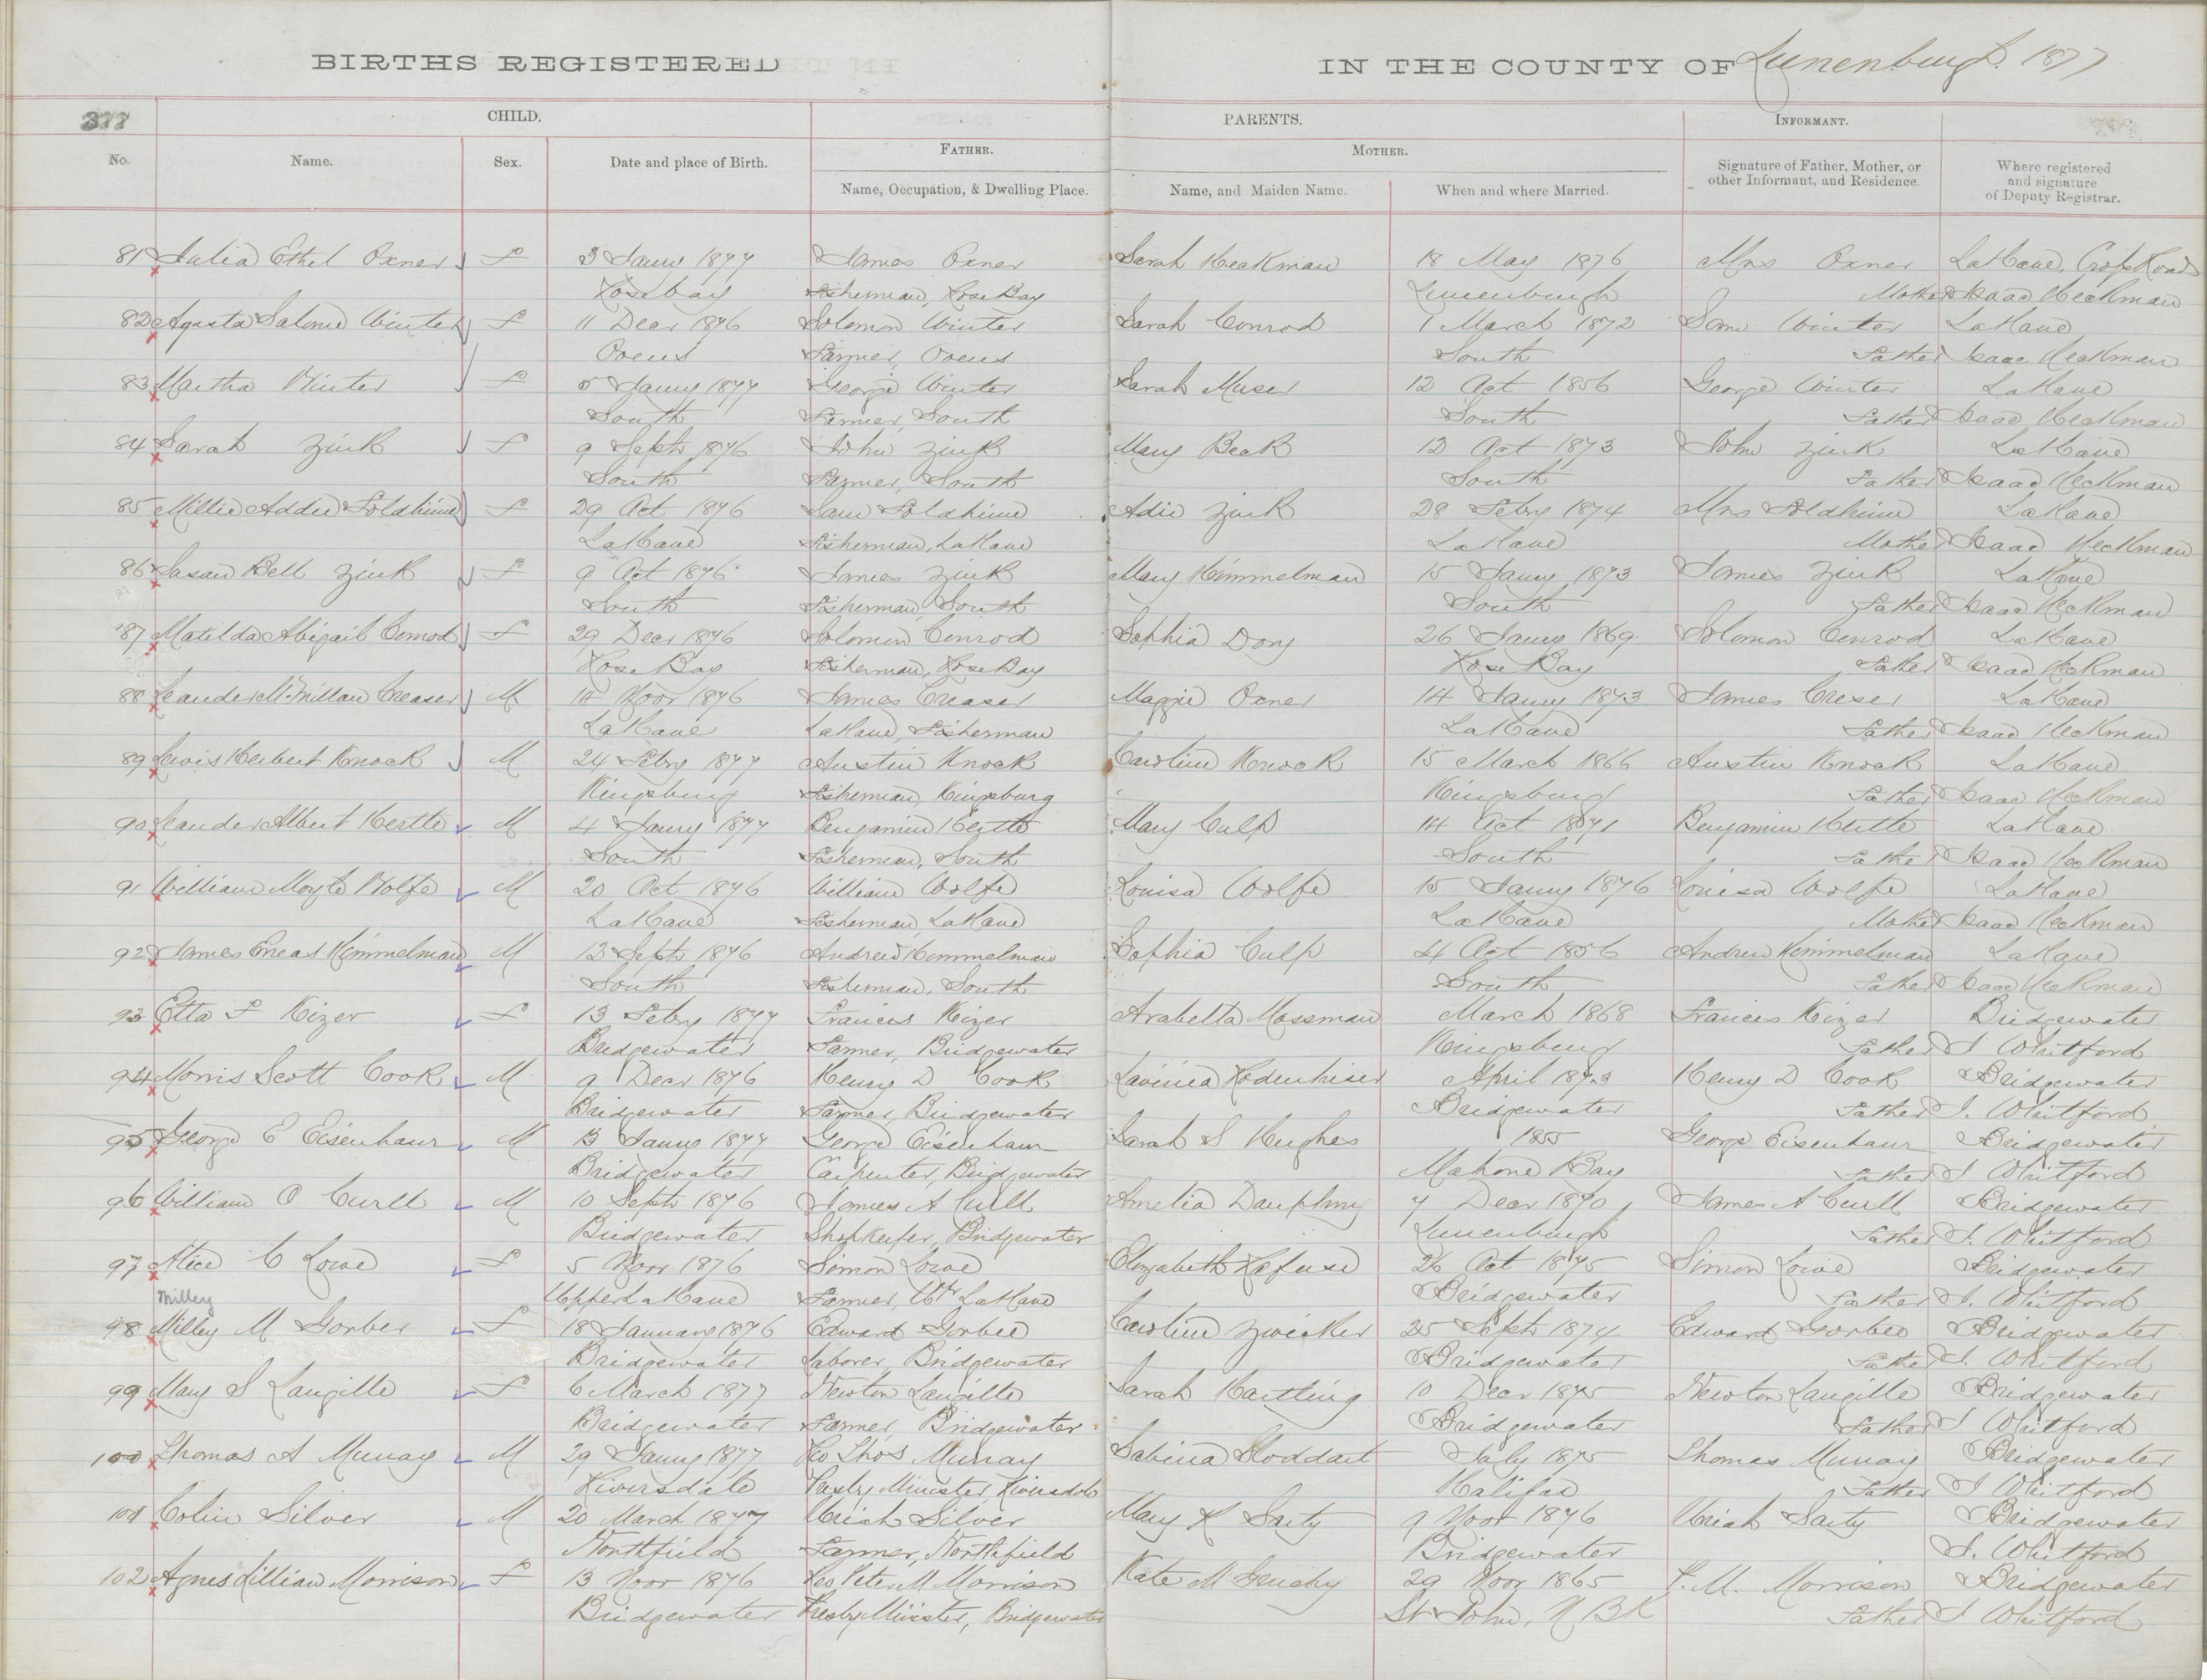 BIRTHS REGISTERED IN THE COUNTY OF Lunenburgh 1877
377 CHILD. PARENTS. INFORMANT.
No. Name. Sex. Date and place of Birth. FATHER. MOTHER. Signature of Father, Mother, or other Informant, and Residence. Where registered and signature of Deputy Registrar.
Name, Occupation, & Dwelling Place. Name, and Maiden Name. When and where Married.
81 Julia Ethel Oxner F 3 Jany 1877 James Oxner Sarah Heckman 18 May 1876 Mrs Oxner LaHave, Cross Roads
Rose bay Fisherman, Rose Bay Lunenburgh Mother Isaac Heckman
82 Agusta Salome Winter F 11 Decr 1876 Solomon Winter Sarah Conrod 1 March 1872 Winter LaHave
Ovens Farmer, Ovens South Father Isaac Heckman
83 Martha Winter F 5 Jany 1877 George Winter Sarah Muser 12 Oct 1856 George Winter LaHave
South Farmer, South South Father Isaac Heckman
84 Sarah Zink F 9 Septr 1876 John Zink Mary Beck 12 Oct 1873 John Zink LaHave
South Farmer, South South Father Isaac Heckman
85 Millie Addie F 29 Oct 1876 Adie Zink 28 Feby 1874 Mrs LaHave
LaHave Fisherman, LaHave LaHave Mother Isaac Heckman
86 Susan Bell Zink F 9 Oct 1876 James Zink Mary Himmelman 15 Jany 1873 James Zink LaHave
South Fisherman, South South Father Isaac Heckman
87 Matilda Abigail Conrod F 29 Decr 1876 Solomon Conrod Sophia Dory 26 Jany 1869 Solomon Conrod LaHave
Rose Bay Fisherman, Rose Bay Rose Bay Father Isaac Heckman
88 Leander McMillan Creaser M 14 Novr 1876 James Creaser Maggie Oxner 14 Jany 1873 James Creser LaHave
LaHave LaHave, Fisherman LaHave Father Isaac Heckman
89 Lewis Herbert Knock M 24 Feby 1877 Austin Knock Caroline Knock 15 March 1866 Austin Knock LaHave
Kingsburg Fisherman, Kingsburg Kingsburg Father Isaac Heckman
90 Leander Albert Hertle M 4 Jany 1877 Benjamin Hertle Mary Culp 14 Oct 1871 Benjamin Hertle LaHave
South Fisherman, South South Father Isaac Heckman
91 William Moyle Wolfe M 20 Oct 1876 William Wolfe Louisa Wolfe 15 Jany 1876 Louisa Wolfe LaHave
LaHave Fisherman, LaHave LaHave Mother Isaac Heckman
92 James Eneas Himmelman M 12 Septr 1876 Andrew Himmelman Sophia Culp 4 Oct 1856 Andrew Himmelman LaHave
South Fisherman, South South Father Isaac Heckman
93 Etta F Kizer F 13 Feby 1877 Francis Kizer Arabella Mossman March 1868 Francis Kizer Bridgewater
Bridgewater Farmer, Bridgewater Kingsburg Father I Whitford
94 Morris Scott Cook M 9 Decr 1876 Henry D Cook Lavinia Rodenhiser April 1873 Henry D Cook Bridgewater
Bridgewater Farmer, Bridgewater Bridgewater Father I. Whitford
95 George E Eisenhaur M 13 Jany 1877 George Eisenhaur Sarah S Hughes 1855 George Eisenhaur Bridgewater
Bridgewater Carpenter, Bridgewater Mahone Bay Father I Whitford
96 William O Curll M 10 Septr 1876 James A Curll Amelia Dauphiny 7 Decr 1870 James A Curll Bridgewater
Bridgewater Shopkeeper, Bridgewater Lunenburgh Father I. Whitford
97 Alice C Lowe F 5 Novr 1876 Simon Lowe Elizabeth Rafuse 26 Oct 1875 Simon Lowe Bridgewater
Upper LaHave Farmer, LaHave Bridgewater Father I. Whitford
Milley
98 Milley M Gorber F 18 January 1876 Edward Gorber Caroline Zwicker 25 Septr 1874 Edward Gorber Bridgewater
Bridgewater Laborer, Bridgewater Bridgewater Father I. Whitford
99 Mary S Langille F 6 March 1877 Newton Langille Sarah Hartling 10 Decr 1875 Newton Langille Bridgewater
Bridgewater Farmer, Bridgewater Bridgewater Father I Whitford
100 Thomas A Murray M 29 Jany 1877 Thos Murray Sabina Stoddart July 1875 Thomas Murray Bridgewater
Riversdale Presby Minister, Riversdale Halifax Father I Whitford
101 Colin Silver M 20 March 1877 Uriah Silver Mary 9 Novr 1876 Uriah Bridgewater
Northfield Farmer, Northfield Bridgewater I. Whitford
102 Agnes Lillian Morrison F 13 Novr 1876 Rev Peter M Morrison Kate 29 Novr 1865 P. M. Morrison Bridgewater
Bridgewater Presby Minister, Bridgewater St John, N BK Father I Whitford